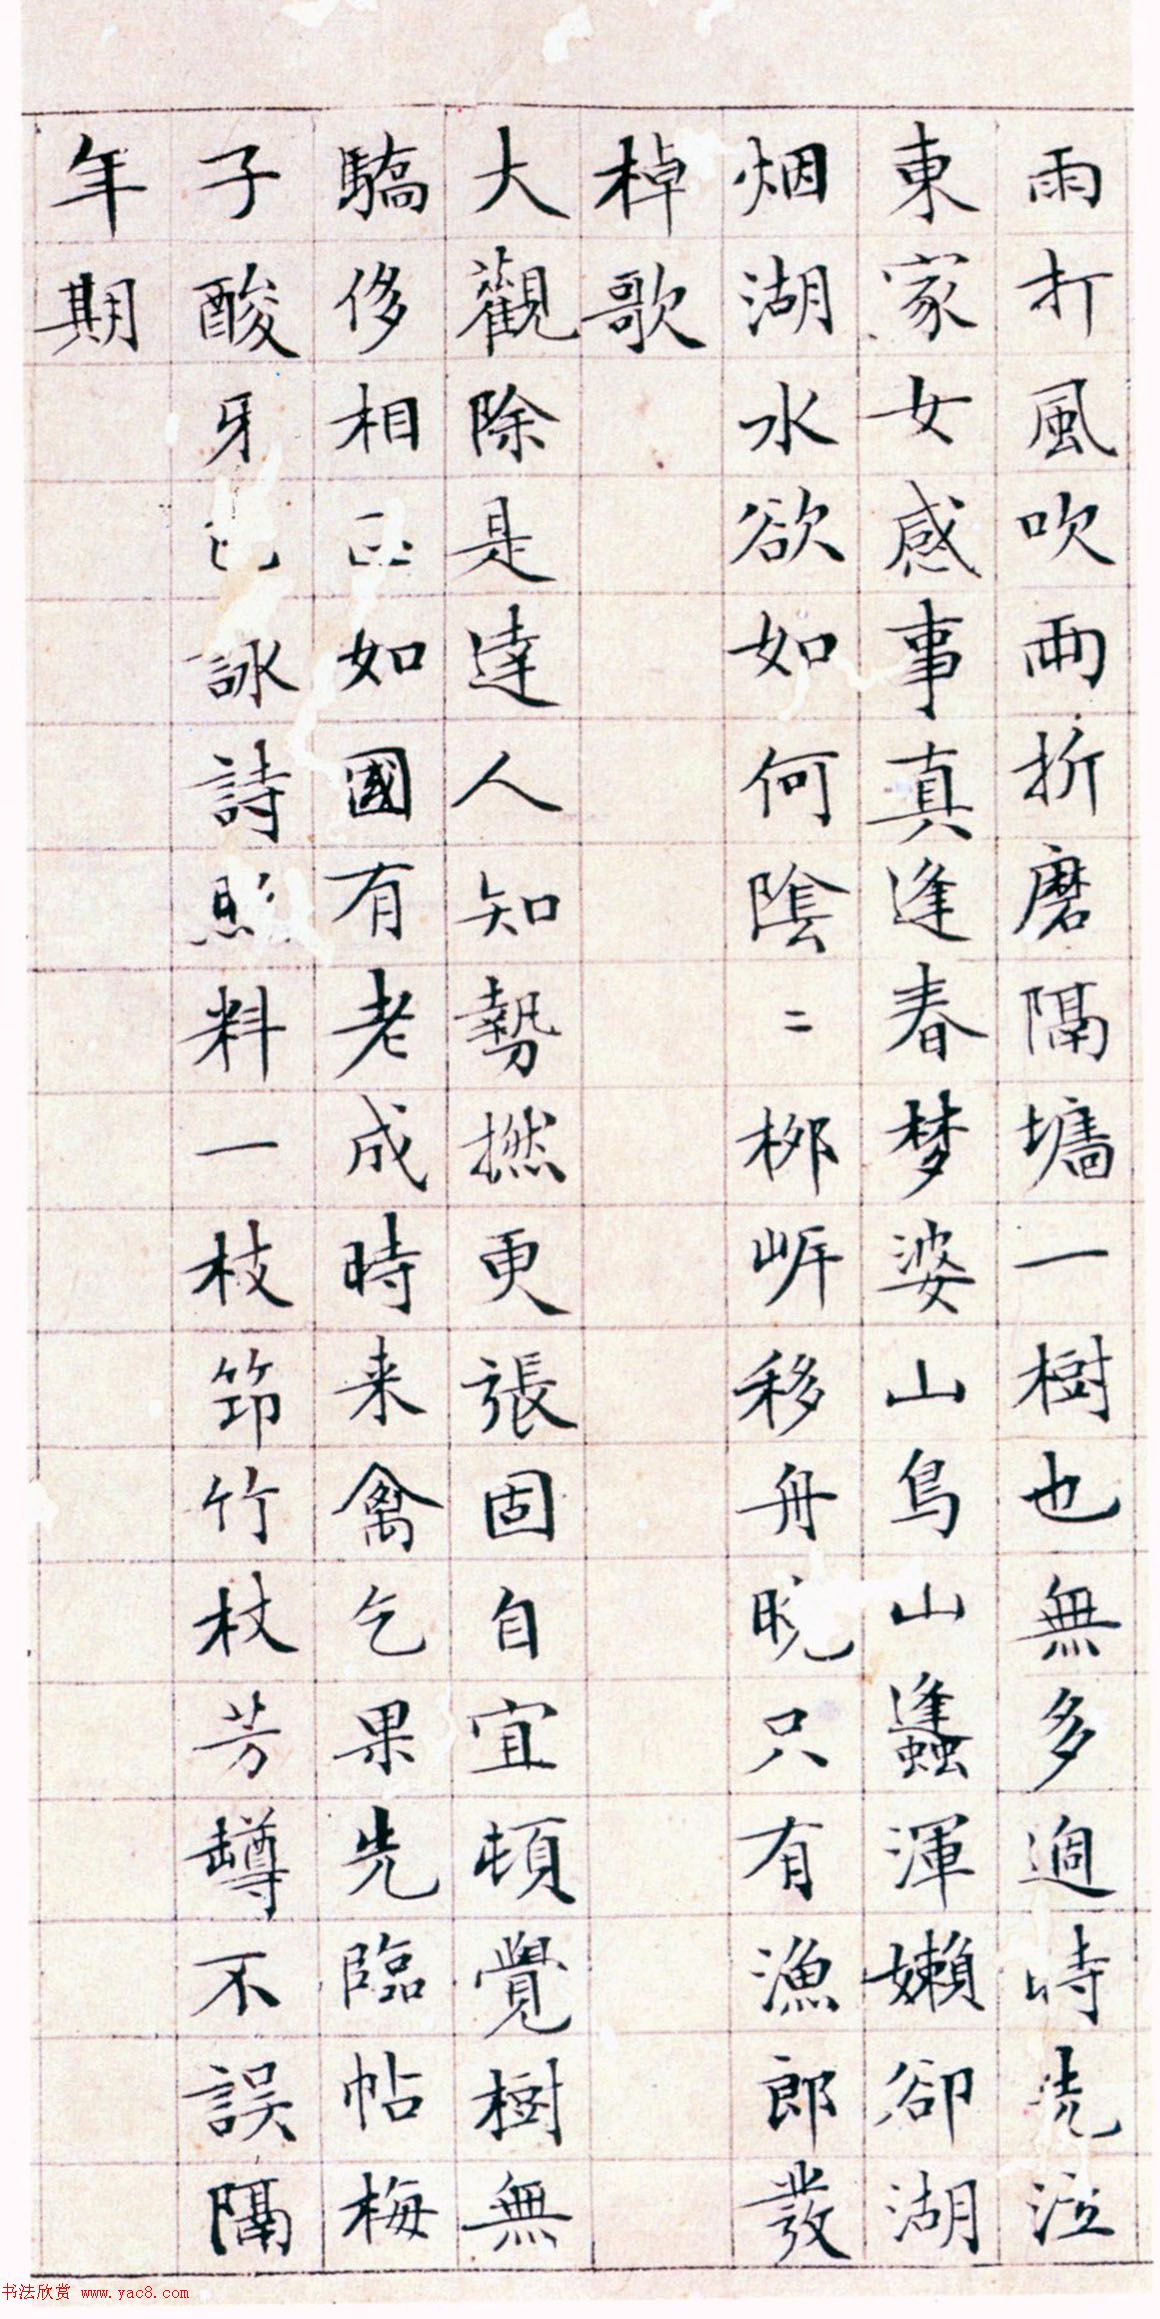 雨打風吹兩折磨隔墻一樹也無多過時洗泣
東家女感事真逢春梦婆山鳥山蠭渾嬾卻湖
烟湖水欲如何陰二桞岍移舟晚只有漁郎發
棹歌
大觀除是達人知勢撚更張固自宜頓覺樹無
驕侈相如國有老成時来禽乞果先臨帖梅
子酸牙詠詩料一枝笻竹杖芳罇不誤隔
年期
书法欣赏 www.yac8.com